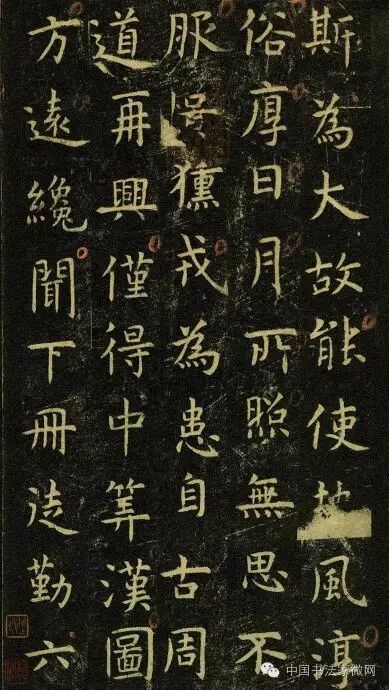 斯為大故能使地風淳
俗厚日月所照無思不
服獯戎為患自古周
道再興僅得中筭漢圖
方遠纔聞下冊徒勤六
中国书法家微网